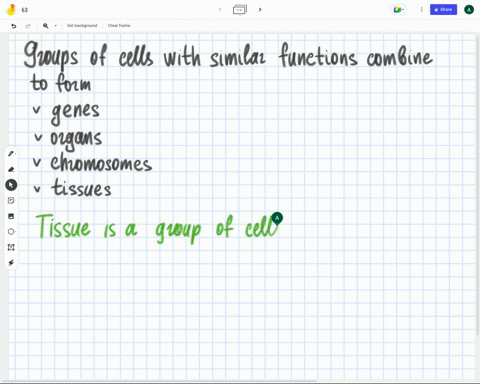 63
Share
A
Set background
Clear frame
Groups of cells with similar functions combine
to form
v genes
v organs
v chromosomes
v tissues
Tissue is a group of cell
A